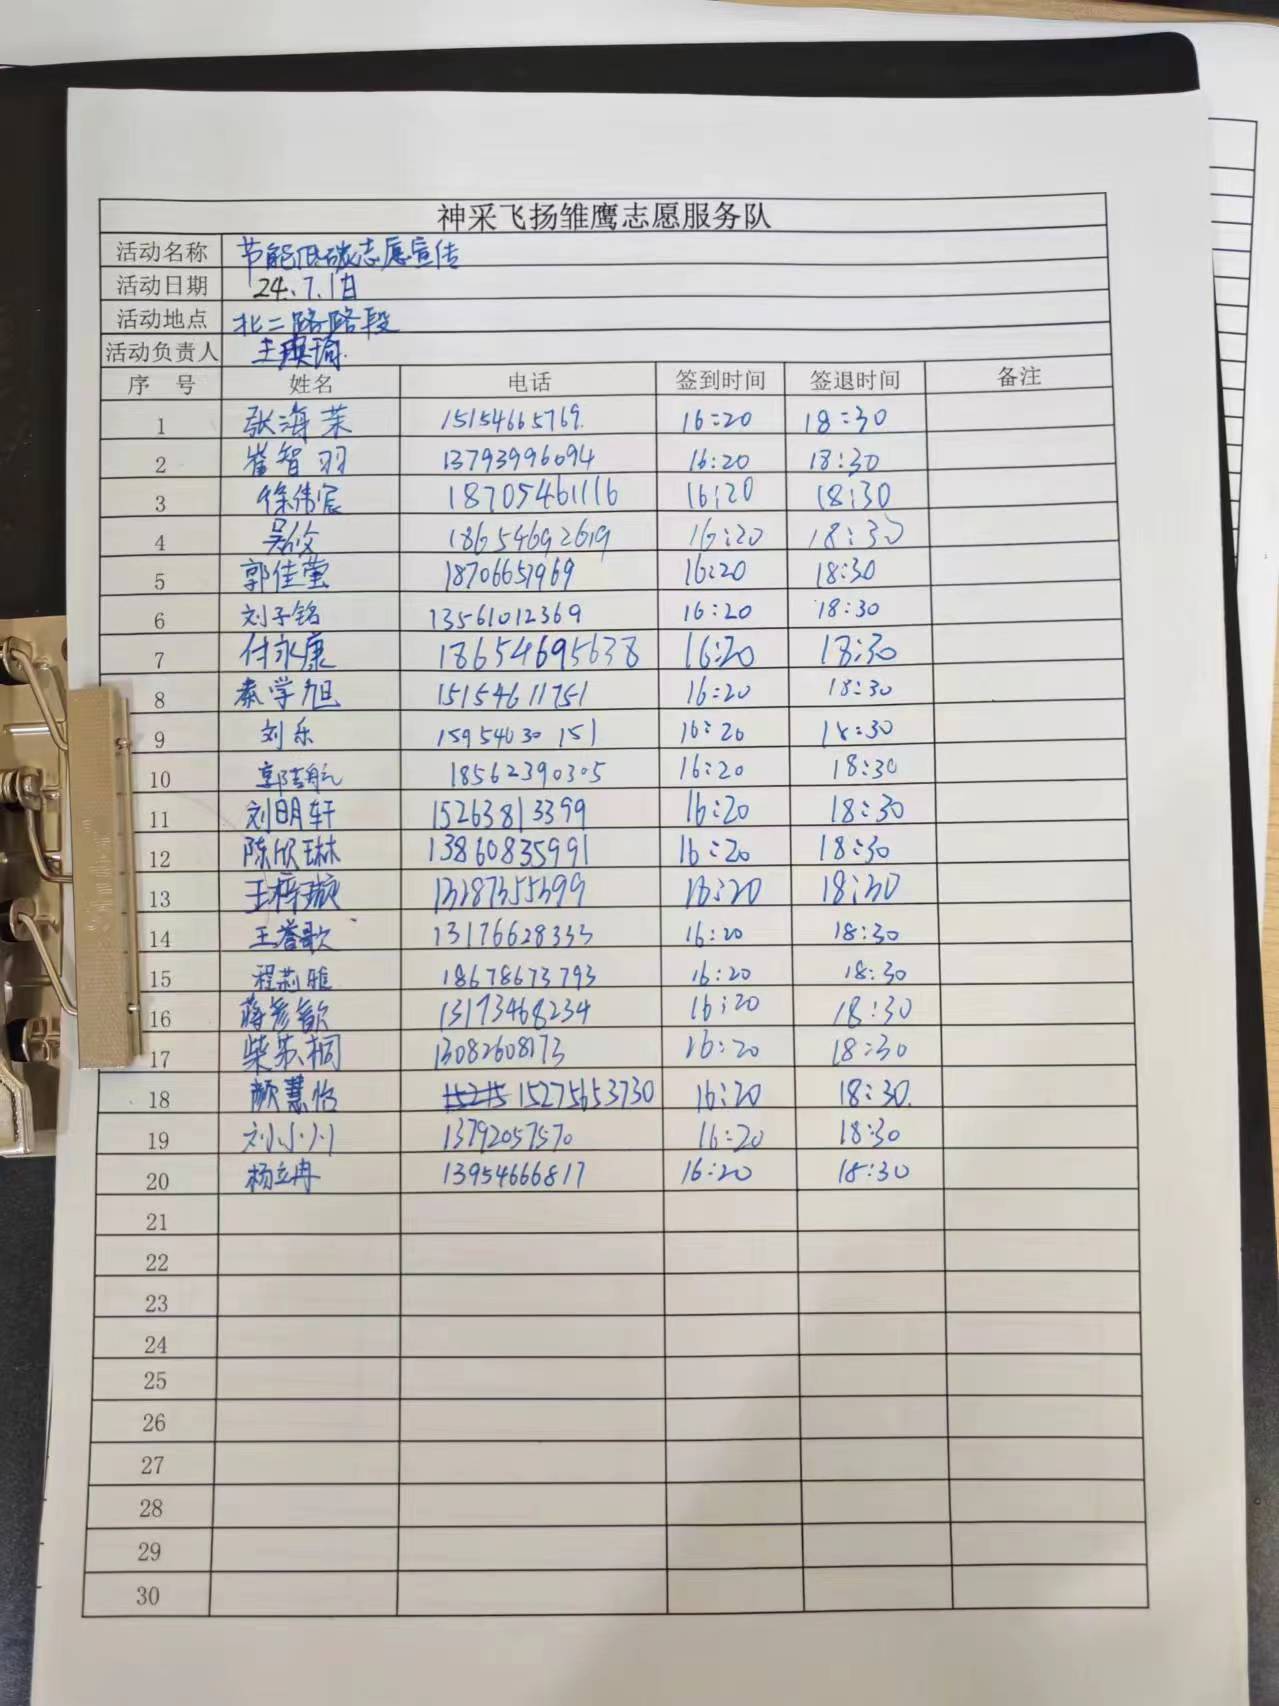 神采飞扬雏鹰志愿服务队
活动名称 节能低碳志愿宣传
活动日期 24.7.1日
活动地点 北二路路段
活动负责人 王瑛瑜
序号 姓名 电话 签到时间 签退时间 备注
1 张海茉 15154665769 16:20 18:30
2 崔智羽 13793996094 16:20 18:30
3 徐伟宸 18705461116 16:20 18:30
4 18654692619 16:20 18:30
5 郭佳莹 18706651969 16:20 18:30
6 刘子铭 13561012369 16:20 18:30
7 付永康 18654695638 16:20 18:30
8 秦学旭 15154611751 16:20 18:30
9 刘乐 15954630151 16:20 18:30
10 18562390305 16:20 18:30
11 刘明轩 15263813399 16:20 18:30
12 陈欣琳 13860835991 16:20 18:30
13 王梓璇 13187355399 16:20 18:30
14 王誉歌 13176628333 16:20 18:30
15 程莉雅 18678673793 16:20 18:30
16 蒋彦歆 13173468234 16:20 18:30
17 柴苏桐 13082608173 16:20 18:30
18 颜慧怡 15275653730 16:20 18:30
19 刘小川 13792057570 16:20 18:30
20 杨立冉 13954666817 16:20 18:30
21
22
23
24
25
26
27
28
29
30